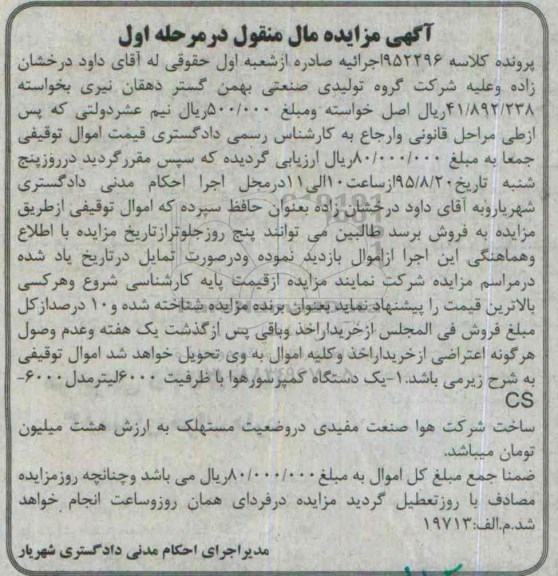 آگهی مزایده مال منقول درمرحله اول
پرونده کلاسه ۹۵۲۲۹۶اجرائیه صادره ازشعبه اول حقوقی له آقای داود درخشان
زاده وعلیه شرکت گروه تولیدی صنعتی بهمن گستر دهقان نیری بخواسته
۴۱/۸۹۲/۲۳۸ریال اصل خواسته ومبلغ ۵۰۰/۰۰۰ریال نیم عشردولتی که پس
ازطی مراحل قانونی وارجاع به کارشناس رسمی دادگستری قیمت اموال توقیفی
جمعا به مبلغ ۸۰/۰۰۰/۰۰۰ریال ارزیابی گردیده که سپس مقررگردید درروزپنج
شنبه تاریخ۹۵/۸/۲۰ازساعت۱۰الی۱۱درمحل اجرا احکام مدنی دادگستری
شهریاروبه آقای داود درخشان زاده بعنوان حافظ سپرده که اموال توقیفی ازطریق
مزایده به فروش برسد طالبین می توانند پنج روزجلوترازتاریخ مزایده با اطلاع
وهماهنگی این اجرا ازاموال بازدید نموده ودرصورت تمایل درتاریخ یاد شده
درمراسم مزایده شرکت نمایند مزایده ازقیمت پایه کارشناسی شروع وهرکسی
بالاترین قیمت را پیشنهاد نماید بعنوان برنده مزایده شناخته شده و۱۰ درصدازکل
مبلغ فروش فی المجلس ازخریداراخذ وباقی پس ازگذشت یک هفته وعدم وصول
هرگونه اعتراضی ازخریداراخذ وکلیه اموال به وی تحویل خواهد شد اموال توقیفی
به شرح زیرمی باشد.۱-یک دستگاه کمپرسورهوا با ظرفیت ۶۰۰۰لیترمدل۶۰۰۰-
CS
ساخت شرکت هوا صنعت مفیدی دروضعیت مستهلک به ارزش هشت میلیون
تومان میباشد.
ضمنا جمع مبلغ کل اموال به مبلغ ۸۰/۰۰۰/۰۰۰ریال می باشد وچنانچه روزمزایده
مصادف با روزتعطیل گردید مزایده درفردای همان روزوساعت انجام خواهد
شد.م.الف:۱۹۷۱۳
مدیراجرای احکام مدنی دادگستری شهریار